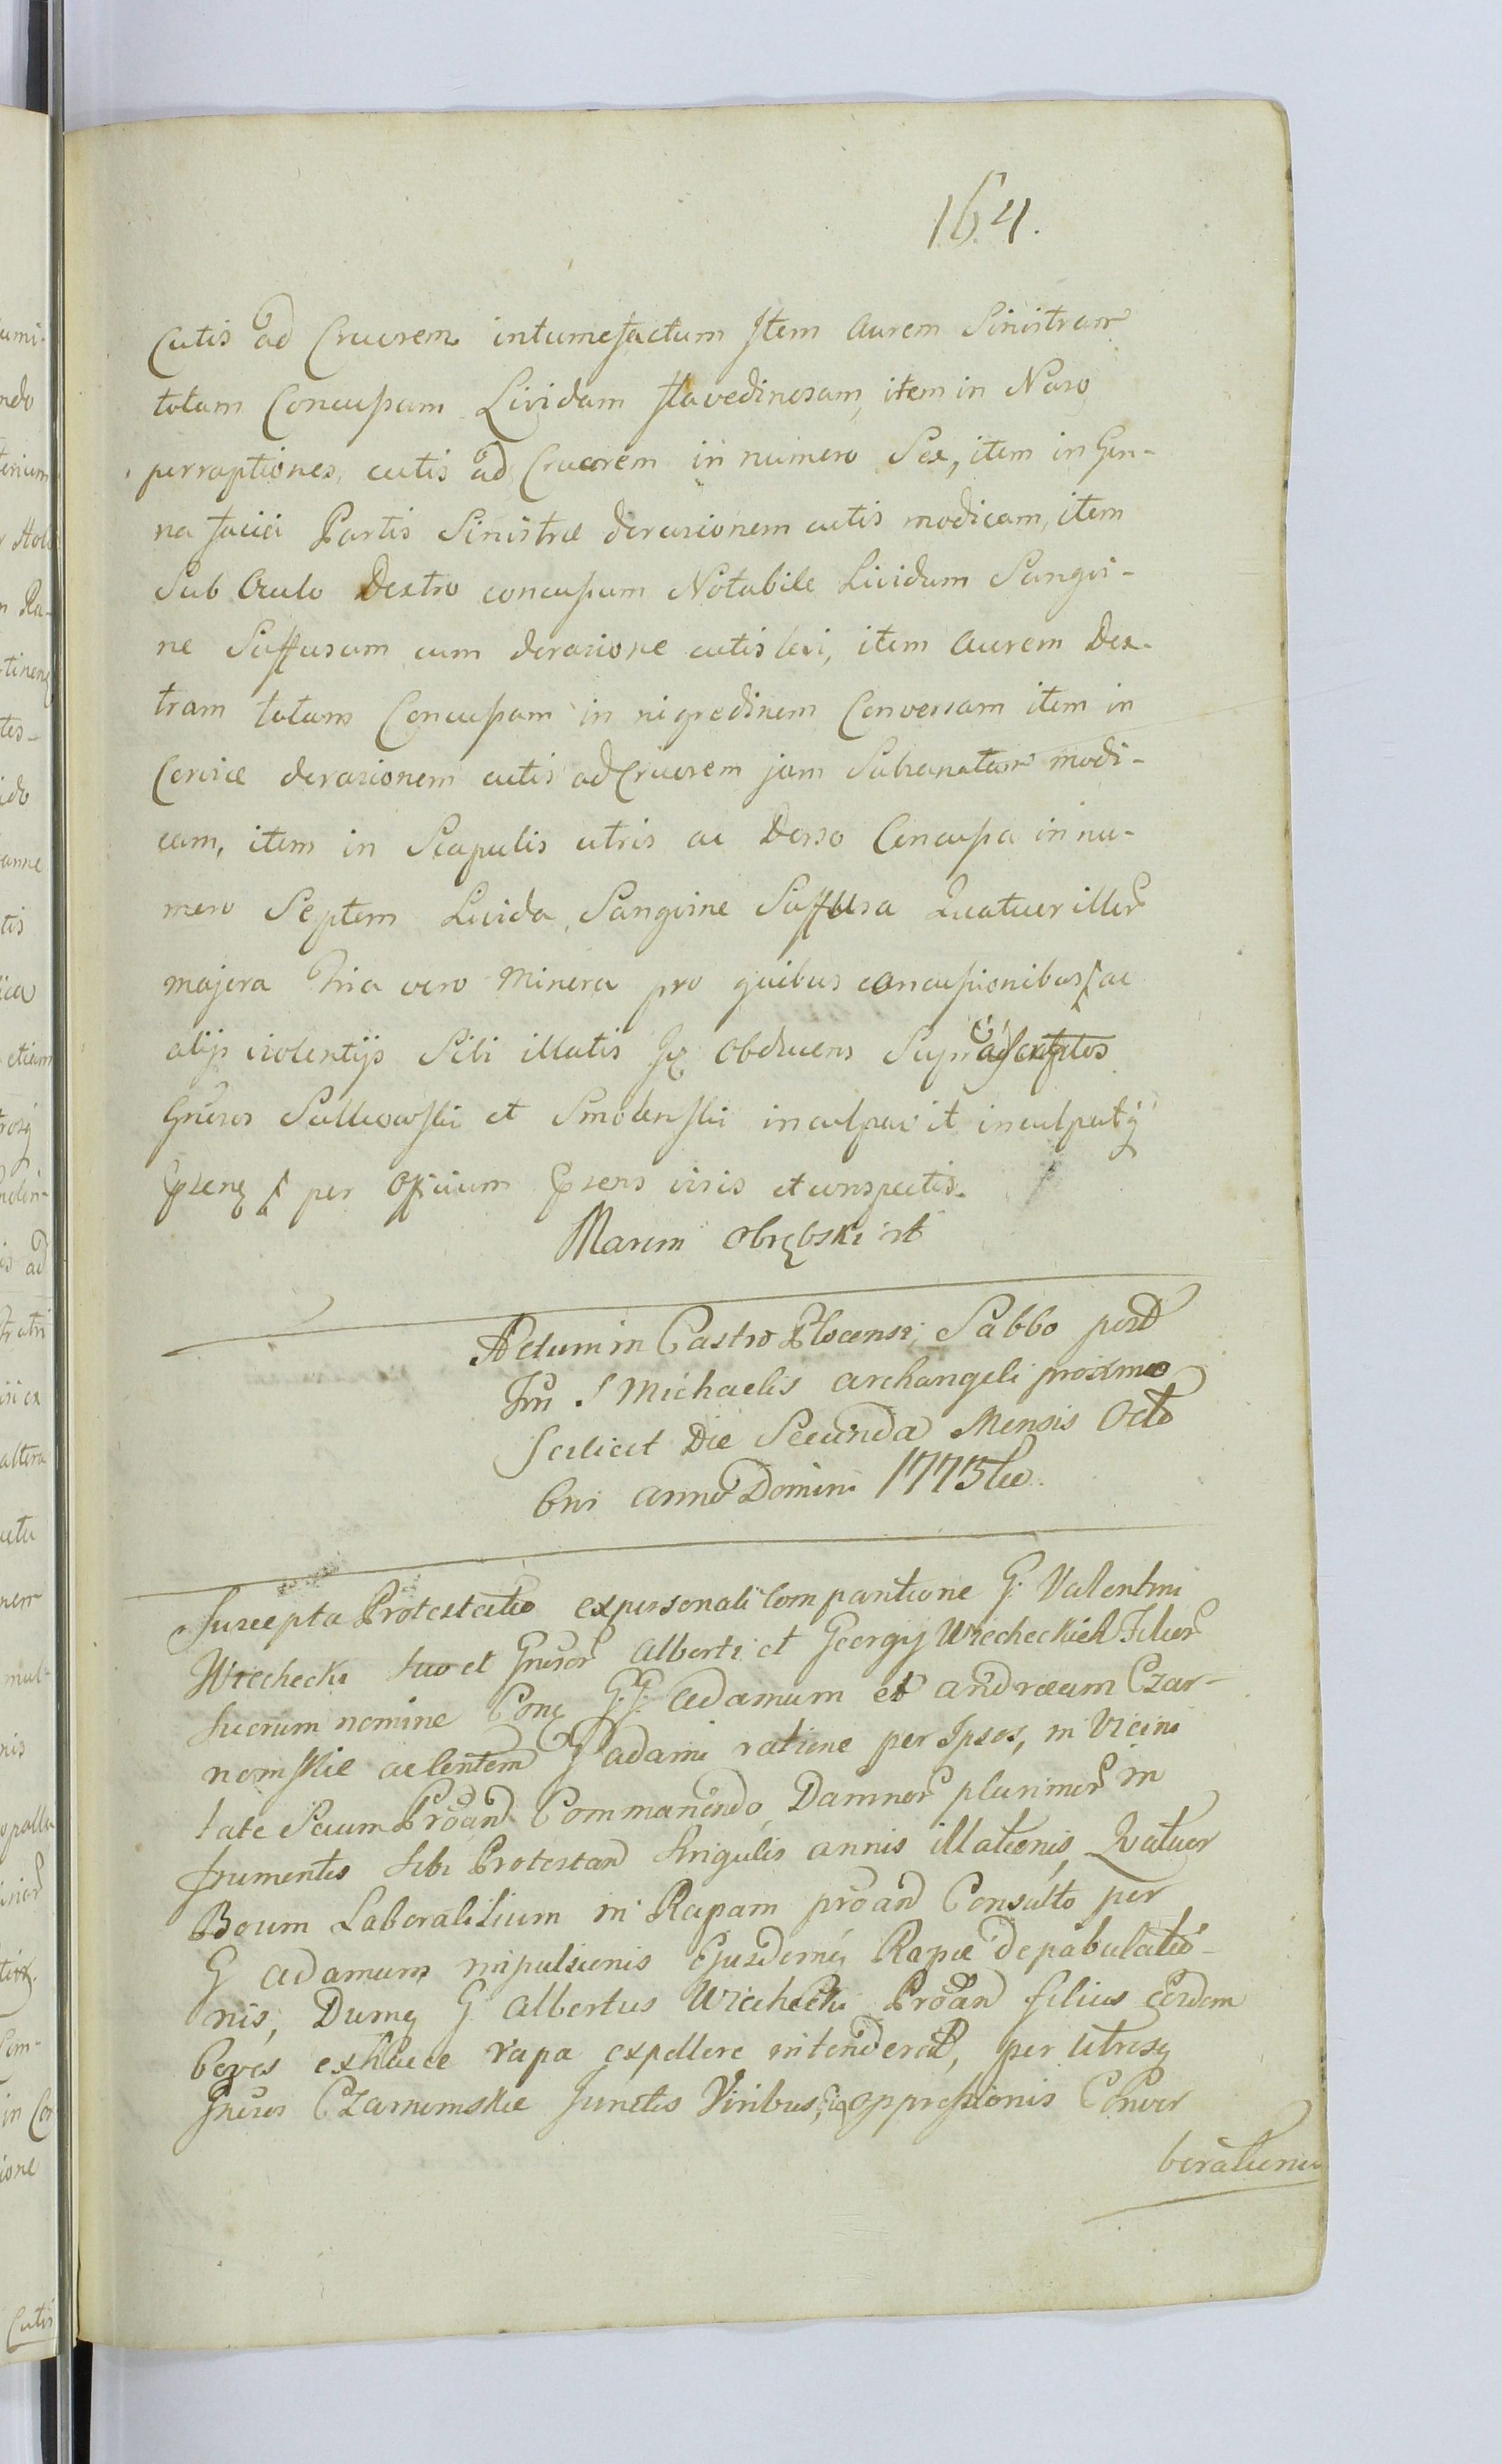 164.
Cutis ad Cruorem intumefactum Item Aurem Sinistram
totam Concussam Lividam flavedinosam, item in Naso
perruptiones cutis ad Cruorem in numero Sex, item in Ge-
na faciei Partis Sinistræ derasionem cutis modicam, item
Sub Oculo Dextro concussum Notabile Lividum Sangvi-
ne Suffusum cum derasione cutis levi, item Aurem Dex-
tram totam Concussam in nigredinem Conversam item in
Cervice derasionem cutis ad Cruorem jam Subsanatam modi-
cam, item in Scapulis utris ac Dorso Concussa in nu-
mero Septem Livida, Sangvine Suffusa Quatuor illor
majora Tria vero Minora pro quibus concussionibus ac
alijs violentijs Sibi illatis Obducens Supra
Gnosos Sulkowski et Smolenski inculpavit inculpatq
per Officium visis et conspectis.
Marcin Obrębski
Actum in Castro Plocensi, Sabbo post
S Michaelis Archangeli proximo
Scilicet Die Secunda Mensis Octo
bris anno Domini 1775to
Suscepta Protestatio ex personali Comparitione G: Valentini
Wiechecki suo et Gnosor Alberti et Georgij Wiecheckich Filior
Suorum nomine Conq G.G. Adamum et Andræum Czar-
nomskie G Adami ratione per Ipsos, in Vicini
tate Secum Proand Commanendo, Damnor plurimor in
frumentis Sibi Protestand Singulis annis illationis, Quatuor
Boum Laboralilium in Rapam proand Consulto per
G Adamum impulsionis Ejusdemq Rapæ depabulatio-
nis, Dumq G Albertus Wiechecki Proand filius eosdem
boves ex hacce rapa expellere intenderat, per Utrosq
Gnosos Czarnomskie Junctis Viribus, oppressionis Conver
berationis